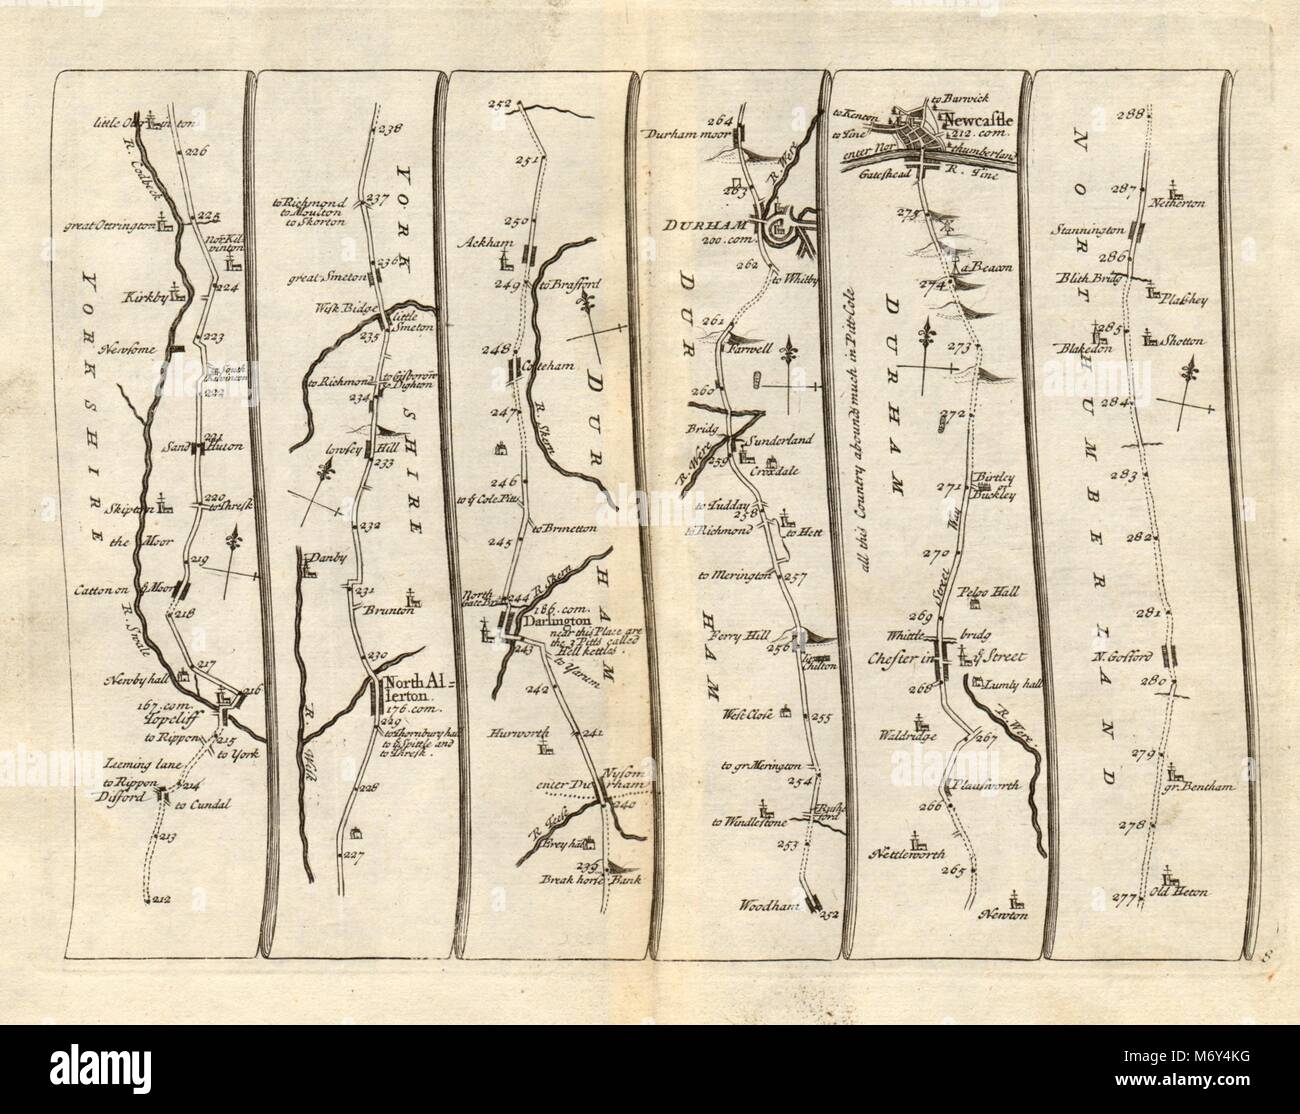 little Ottrington
R. Codbeck
226
225
great Ottrington
Nor. Kilvinton
YORKSHIRE
Kirkby
224
223
Newsome
South
222
221
Sand Huton
220
Skipton
to Thresk
the Moor
219
Catton on ye Moor
218
R. Swale
217
Newby hall
216
167. com.
Topcliff
to Rippon
215
to York
Leeming lane
to Rippon
214
Disford
to Cundal
213
212
238
YORK SHIRE
to Richmond
to Moulton
to Skorton
237
236
great Smeton
Wisk Bidge
little Smeton
235
to Richmond
to Gisborow
to Dighton
234
lowsey Hill
233
232
Danby
231
Brunton
230
North Allerton.
176. com.
R. Wisk
229
to Thornbury hall
to ye Spittle and
to Thresk.
228
227
252
251
250
Ackham
249
to Brafford
DURHAM
248
Coteham
247
R. Skern
246
to ye Cole Pitts
to Brmetton
245
R. Skern
North Gate Br.
244
186. com.
Darlington
near this Place are
the 3 Pitts called
Hell kettles.
243
to Yarum
242
241
Hurworth
Nysom
enter Durham
240
R. Tees
Grey hall
239
Break horse Bank
264
Durham moor
R. Were
263
DURHAM
200. com.
262
to Whitby
DURHAM
261
Farwell
260
Bridg
Sunderland
R. Were
259
Croxdale
to Tudday
258
to Richmond
to Hett
to Merington
257
Ferry Hill
256
Chilton
West Close
255
to gr. Merington
254
Rusheford
to Windlestone
253
Woodham
252
to Barwick
to Kenton
Newcastle
212. com.
to Tine
enter Northumberland
Gateshead
R. Tine
275
a Beacon
274
DURHAM
all this Country abounds much in Pitt-Cole
273
272
Birtley
271
Buckley
Street Way
270
Pelgo Hall
269
Whittle bridg
Chester in ye Street
268
Lumly hall
R. Were
Waldridge
267
Plausworth
266
Nettleworth
265
Newton
288
NORTHUMBERLAND
287
Netherton
Stannington
286
Blith Bridg
Plashey
285
Blakedon
Shotton
284
283
282
281
N. Gosford
280
279
gr. Bentham
278
277
Old Heton
8
alamy
alamy stock photo
alamy
Image ID: M6Y4KG
www.alamy.com